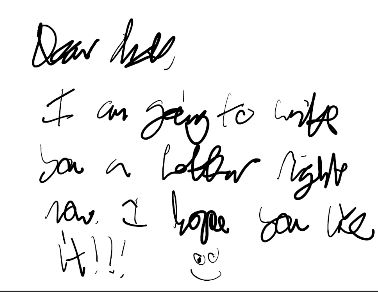 Dear
I am going to write
you a letter right
now. I hope you like
it!!!